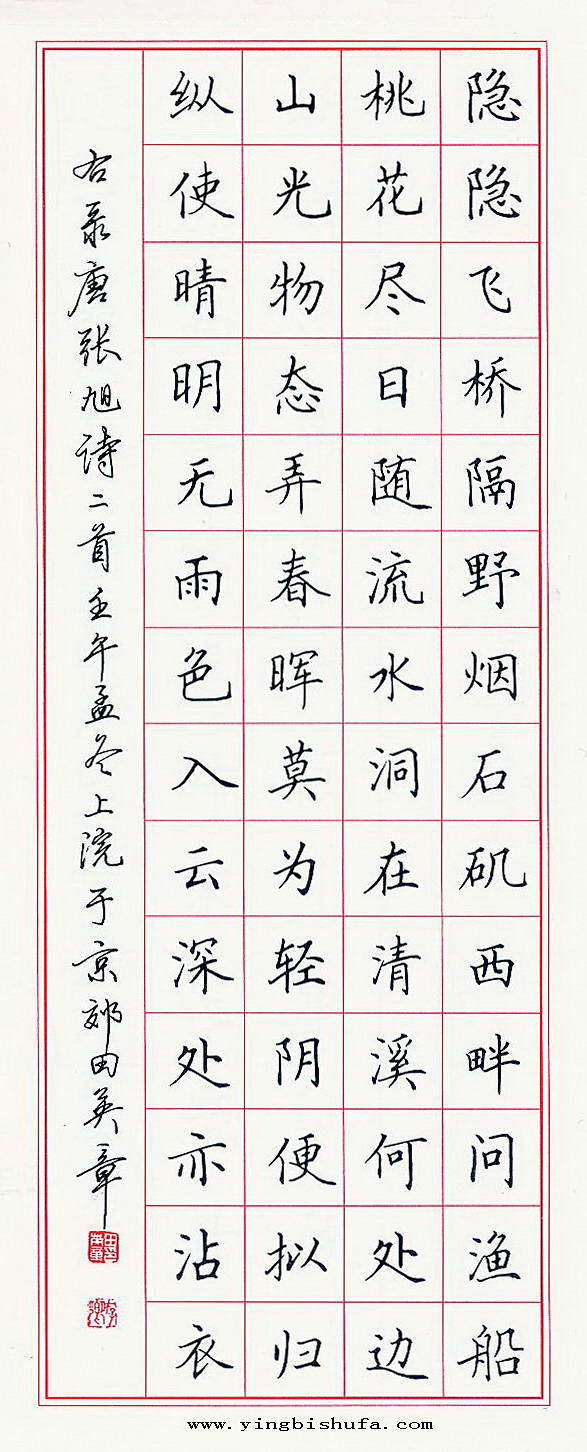 隐隐飞桥隔野烟石矶西畔问渔船
桃花尽日随流水洞在清溪何处边
山光物态弄春晖莫为轻阴便拟归
纵使晴明无雨色入云深处亦沾衣
右录唐张旭诗二首壬午孟冬上浣于京郊田英章
田英章
www.yingbishufa.com